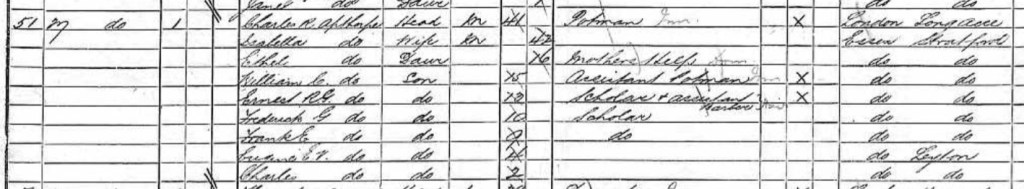 Janet do Daur do do
51 M do 1 Charles R. Apthorpe Head M 41 Potman Inn X London Long Acre
Isabella do Wife M 42 Essex Stratford
Ethel do Daur 16 Mothers Help Dom do do
William C. do Son 15 Assistant Potman Inn X do do
Ernest R.G. do do 13 Scholar & assistant Barber X do do
Frederick G do do 10 Scholar do do
Frank E. do do 9 do do do
Eugenie E.V. do do 4 do Leyton
Charles do do 2 do do